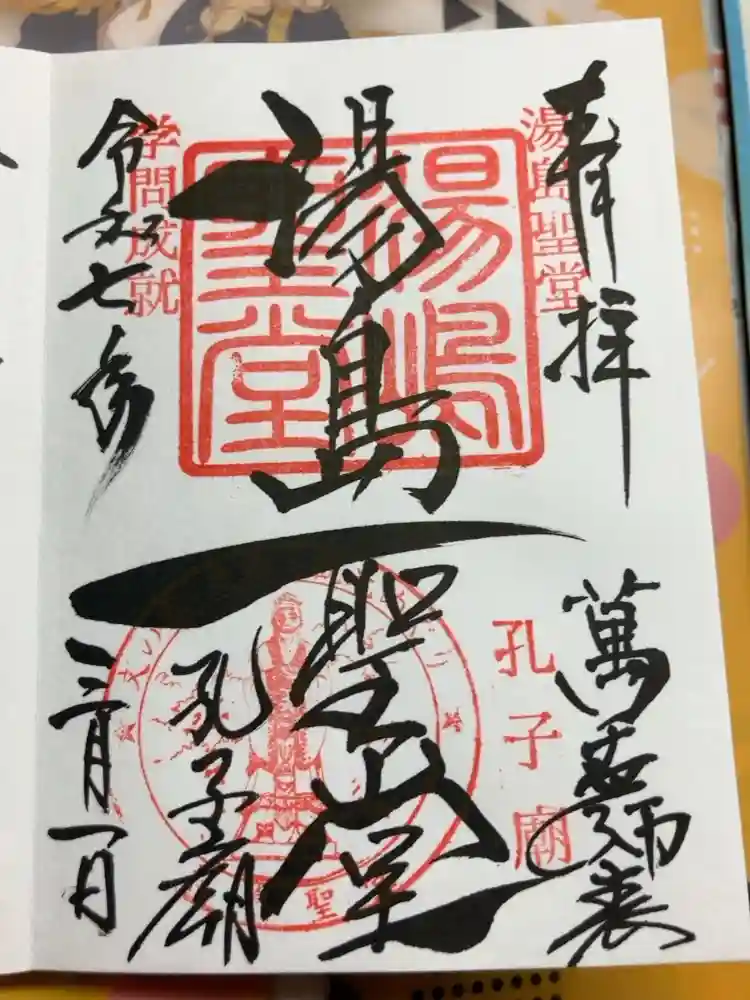 奉拝
湯島聖堂
萬世師表
孔子廟
湯島聖堂
湯嶋聖堂
孔子廟
聖
学問成就
令和七年
三月一日